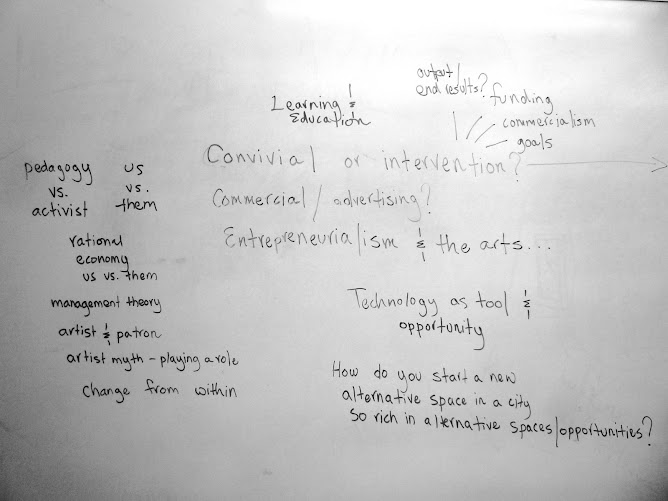 output/
end results?
funding
commercialism
goals
Learning &
Education
Convivial or intervention?
Commercial/advertising?
Entrepreneurialism & the arts...
pedagogy
vs.
activist
us
vs.
them
rational
economy
us vs. them
management theory
artist & patron
artist myth - playing a role
change from within
Technology as tool &
opportunity
How do you start a new
alternative space in a city
so rich in alternative spaces/opportunities?